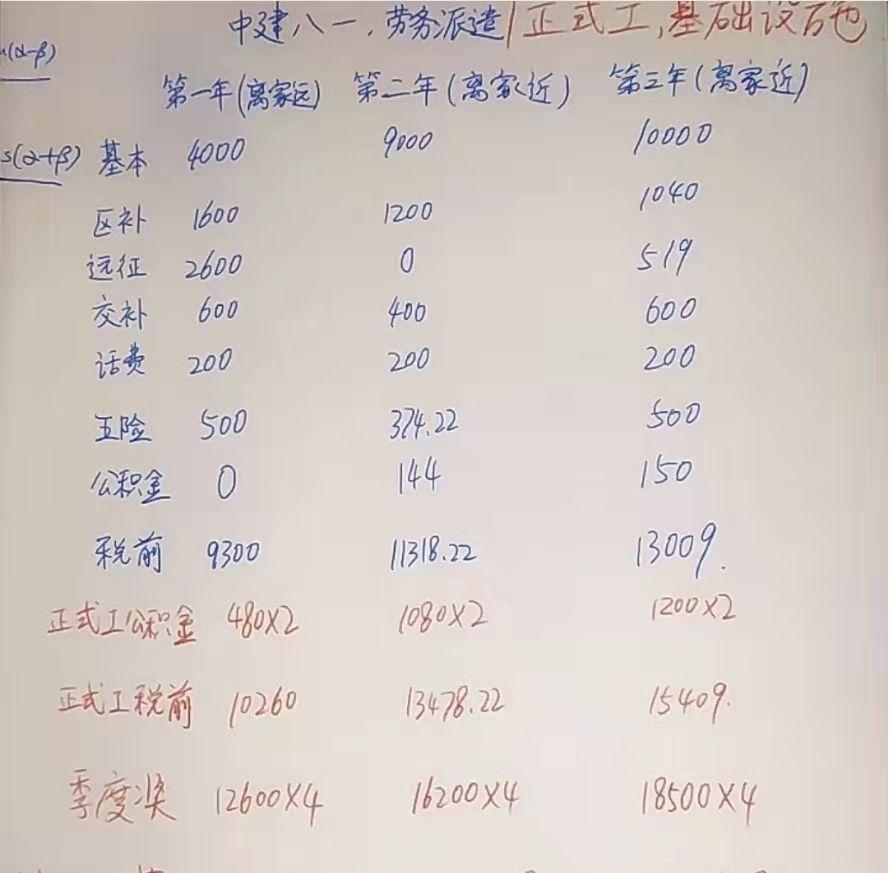 中建八一,劳务派遣/正式工,基础设方包
n(α-β)
第一年(离家远) 第二年(离家近) 第三年(离家近)
s(α+β) 基本 4000 9000 10000
区补 1600 1200 1040
远征 2600 0 519
交补 600 400 600
话费 200 200 200
五险 500 374.22 500
公积金 0 144 150
税前 9300 11318.22 13009.
正式工公积金 480×2 1080×2 1200×2
正式工税前 10260 13478.22 15409.
季度奖 12600×4 16200×4 18500×4